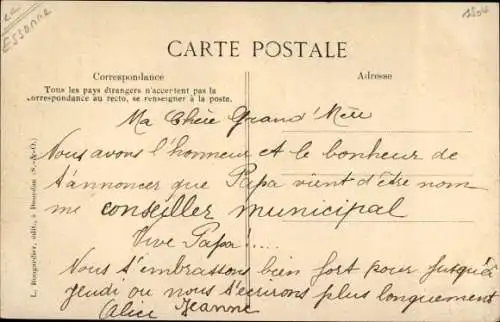 Essonne
CARTE POSTALE
Correspondance
Adresse
Tous les pays étrangers n'acceptent pas la
correspondance au recto, se renseigner à la poste.
Ma Chère Grand' Mère
Nous avons l'honneur et le bonheur de
t'annoncer que Papa vient d'être nom
mé conseiller municipal
Vive Papa !....
Nous t'embrassons bien fort pour jusqu'à
jeudi ou nous t'écrirons plus longuement
Alice Jeanne
L. Bougardier, édit., à Dourdan (S.-&-O.)